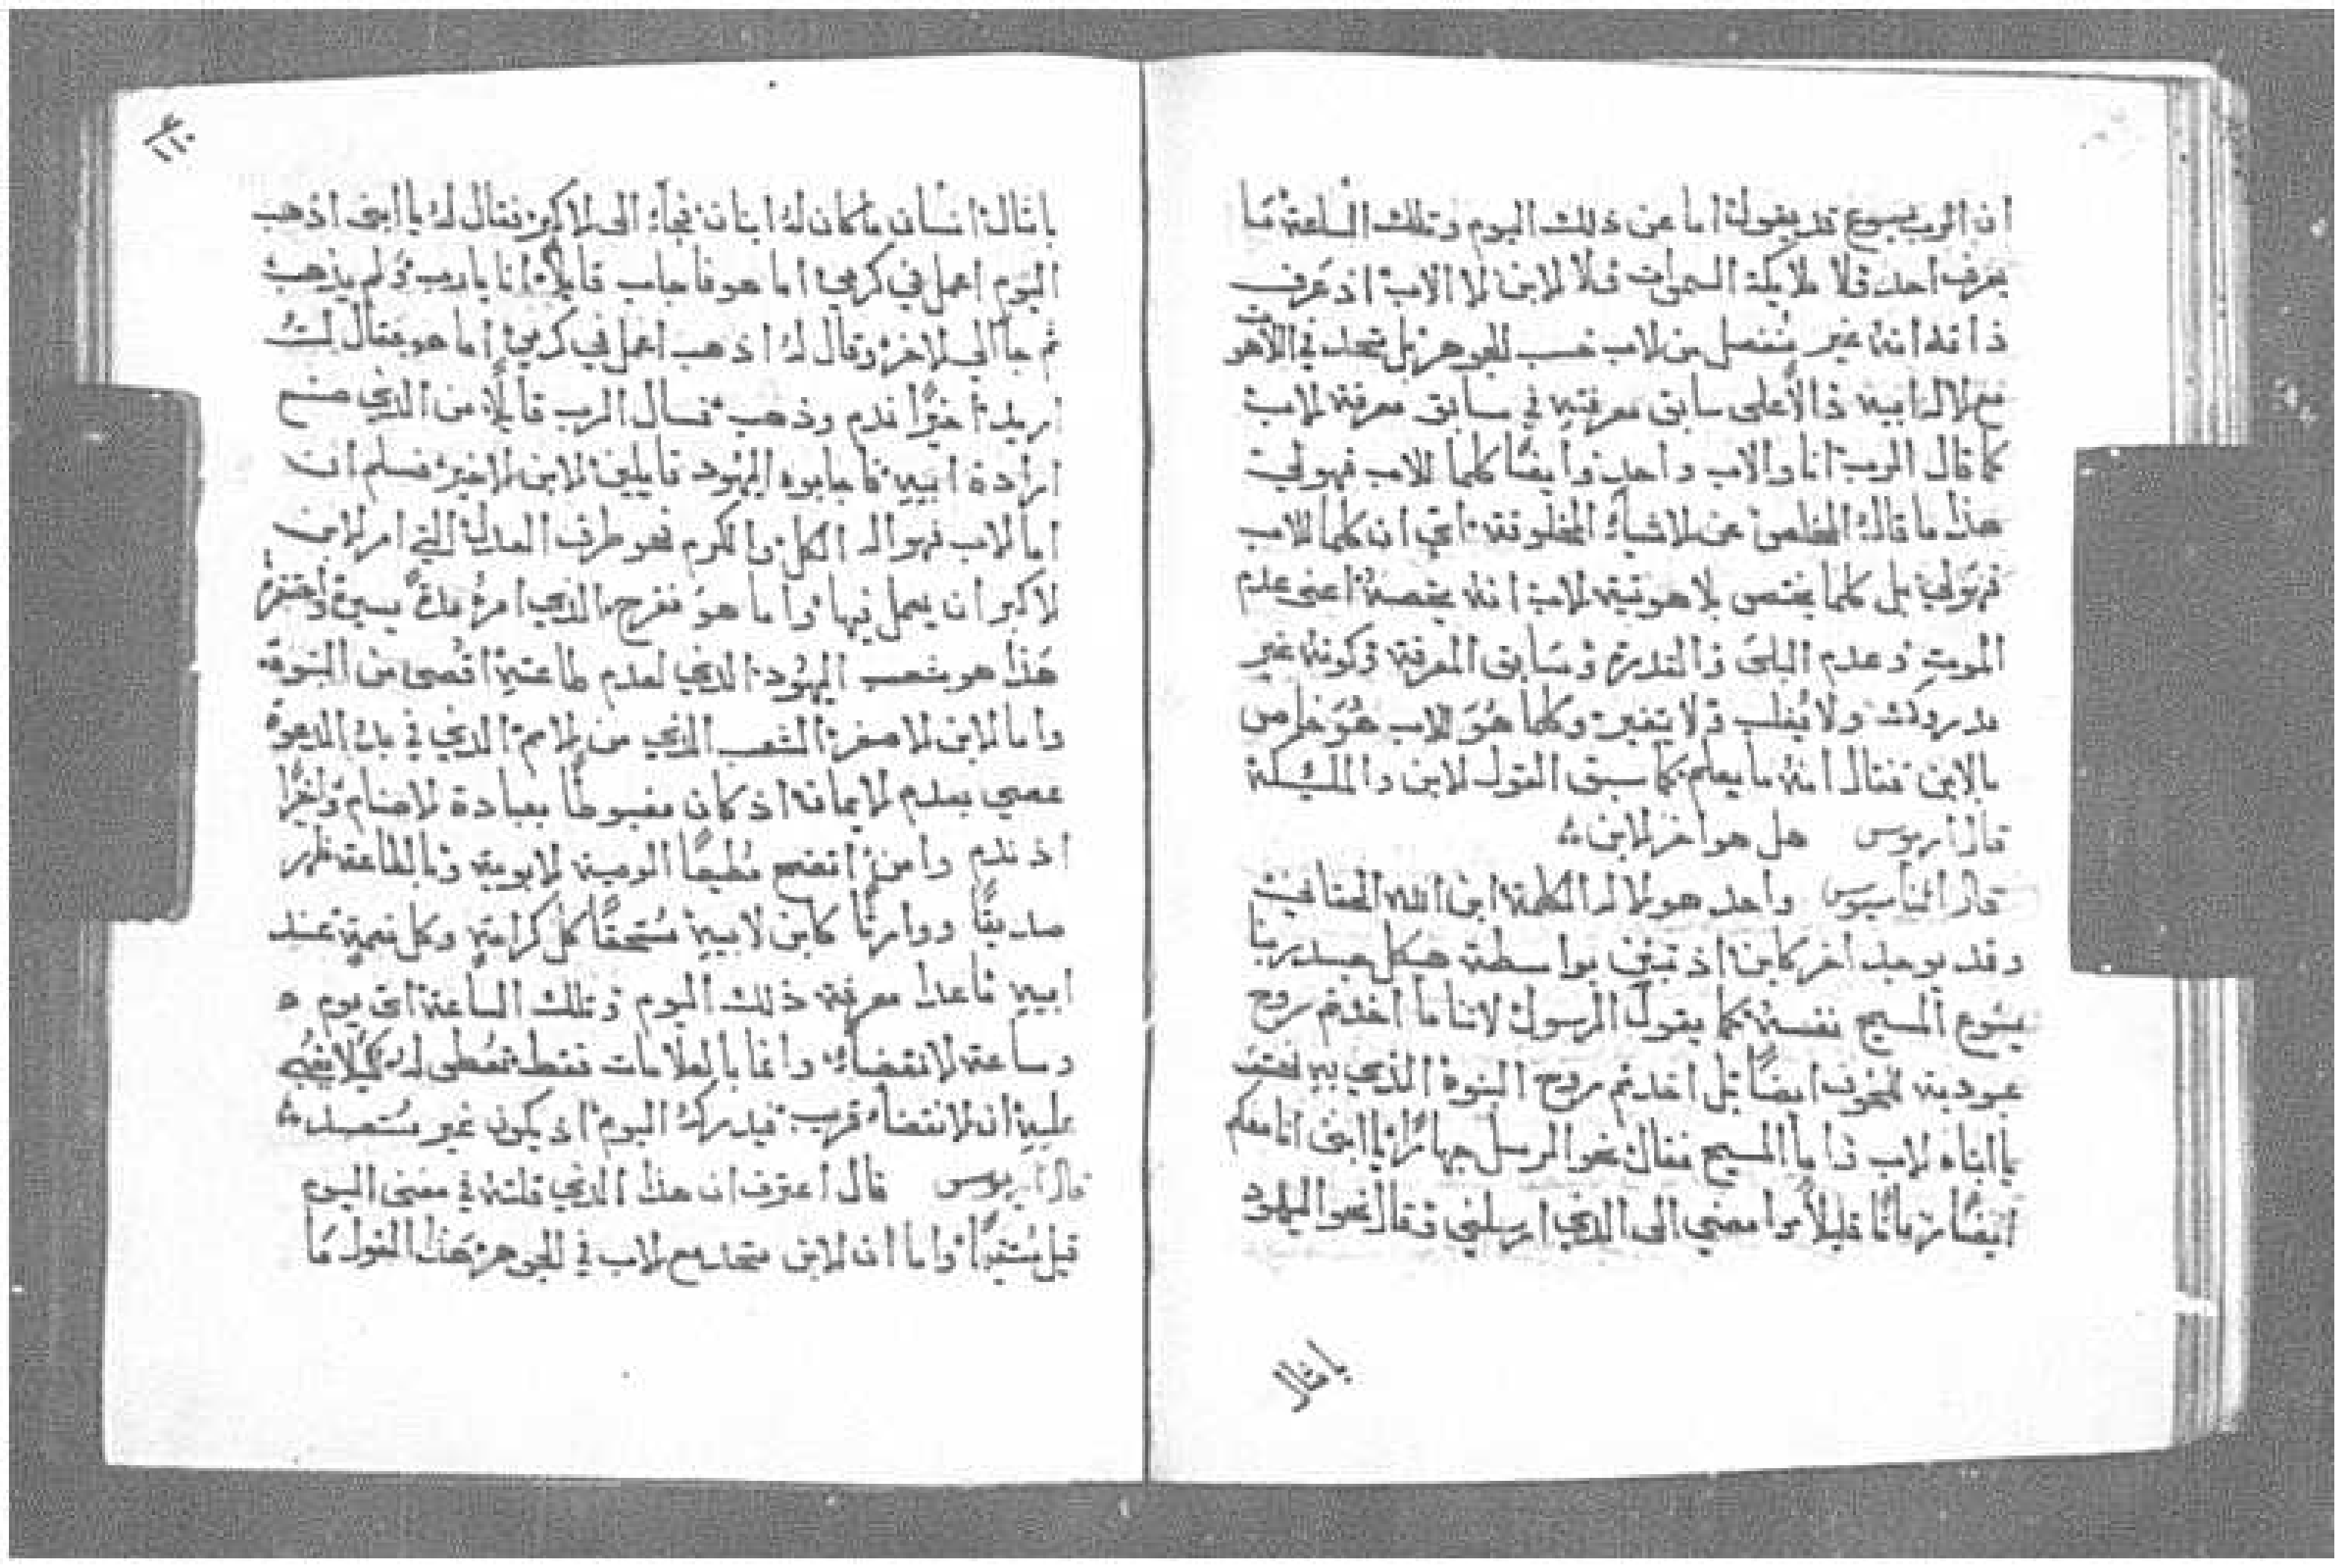 ان الرب يسوع قد يقول اما عن ذلك اليوم وتلك الساعة ما
يعرف احد ولا ملايكة السموات ولا الابن الا الاب اذ عرف
ذاته انه غير منفصل من الاب حسب الجوهر بل متحد في اللاهوت
مع الاله ابيه ذا الاعلى سابق معرفته في سابق معرفة الاب
كما قال الرب انا والاب واحد وايضًا كلما للاب فهو لي
هذا ما قاله المخلص عن الاشياء المخلوقة اي ان كلما للاب
فهو لي بل كلما يختص بلاهوتية الاب انه يخصه اعني عدم
الموت وعدم البلى والقدرة وسابق المعرفة وكونه غير
مدروك ولا يُغلب ولا يتغير وكلما هو للاب هُوَ خاص
بالابن فقال انه ما يعلم كما سبق القول الابن والمليكة
قال اريوس هل هو اخر الابن
قال اتناسيوس واحد هو الاله الكلمة ابن الله الحقاني
وقد يوجد اخر كابن اذ تبني بواسطة هيكل جسد ربنا
يسوع المسيح نفسه كما يقول الرسول لاننا ما اخدتم روح
عبودية للخوف ايضًا بل اخدتم روح البنوة الذي به نهتف
يا ابتاه الاب واما المسيح فقال نحو الرسل جهارًا يا ابنى انا معكم
ايضًا زمانًا قليلًا وامضي الى الذي ارسلني وقال نحو اليهود
يا مثال
٢١٠
يا مثال انسان ما كان له ابنان فجاء الى الاكبر فقال له يا ابنى اذهب
اليوم اعمل في كرمي اما هو فاجاب قايلًا انا يا رب ولم يذهب
ثم جا الى الاخر وقال له اذهب اعمل في كرمي اما هو فقال لست
اريد اخيرًا ندم وذهب فسال الرب قايلًا من الذي صنع
ارادة ابيه فاجابوه اليهود قايلين الابن الاخير فسلم ان
اما الاب فهو اله الكل والكرم فهو طرف العدل التي امر الابن
الاكبر ان يعمل فيها واما هو ففرح الذي امره مدة يسيرة
هذا هو شعب اليهود الذي لعدم طاعته اقصى من البنوة
واما الابن الاصغر الشعب الذي من الامم الذي في بدء الدعوة
عصي بعدم الايمانة اذ كان مضبوطًا بعبادة الاصنام واخيرًا
اذ ندم وامن اتضح مُطيعًا الوصية الابوية وبالطاعة ظهر
صديقًا ووارثًا كابن لابيه مُستحقًا كل كرامة وكل نعمة عند
ابيه ما عدا معرفة ذلك اليوم وتلك الساعة اي يوم
وساعة الانقضاء وانما بالعلامات فقط تُعطى له كيلا يشبه
عليه ان الانقضاء قرب فيدركه اليوم اذ يكون غير مُستعد
قال اريوس قال اعترف ان هذا الذي قلته في معنى اليوم
قبل واما ان الابن متحد مع الاب في الجوهر هذا القول ما